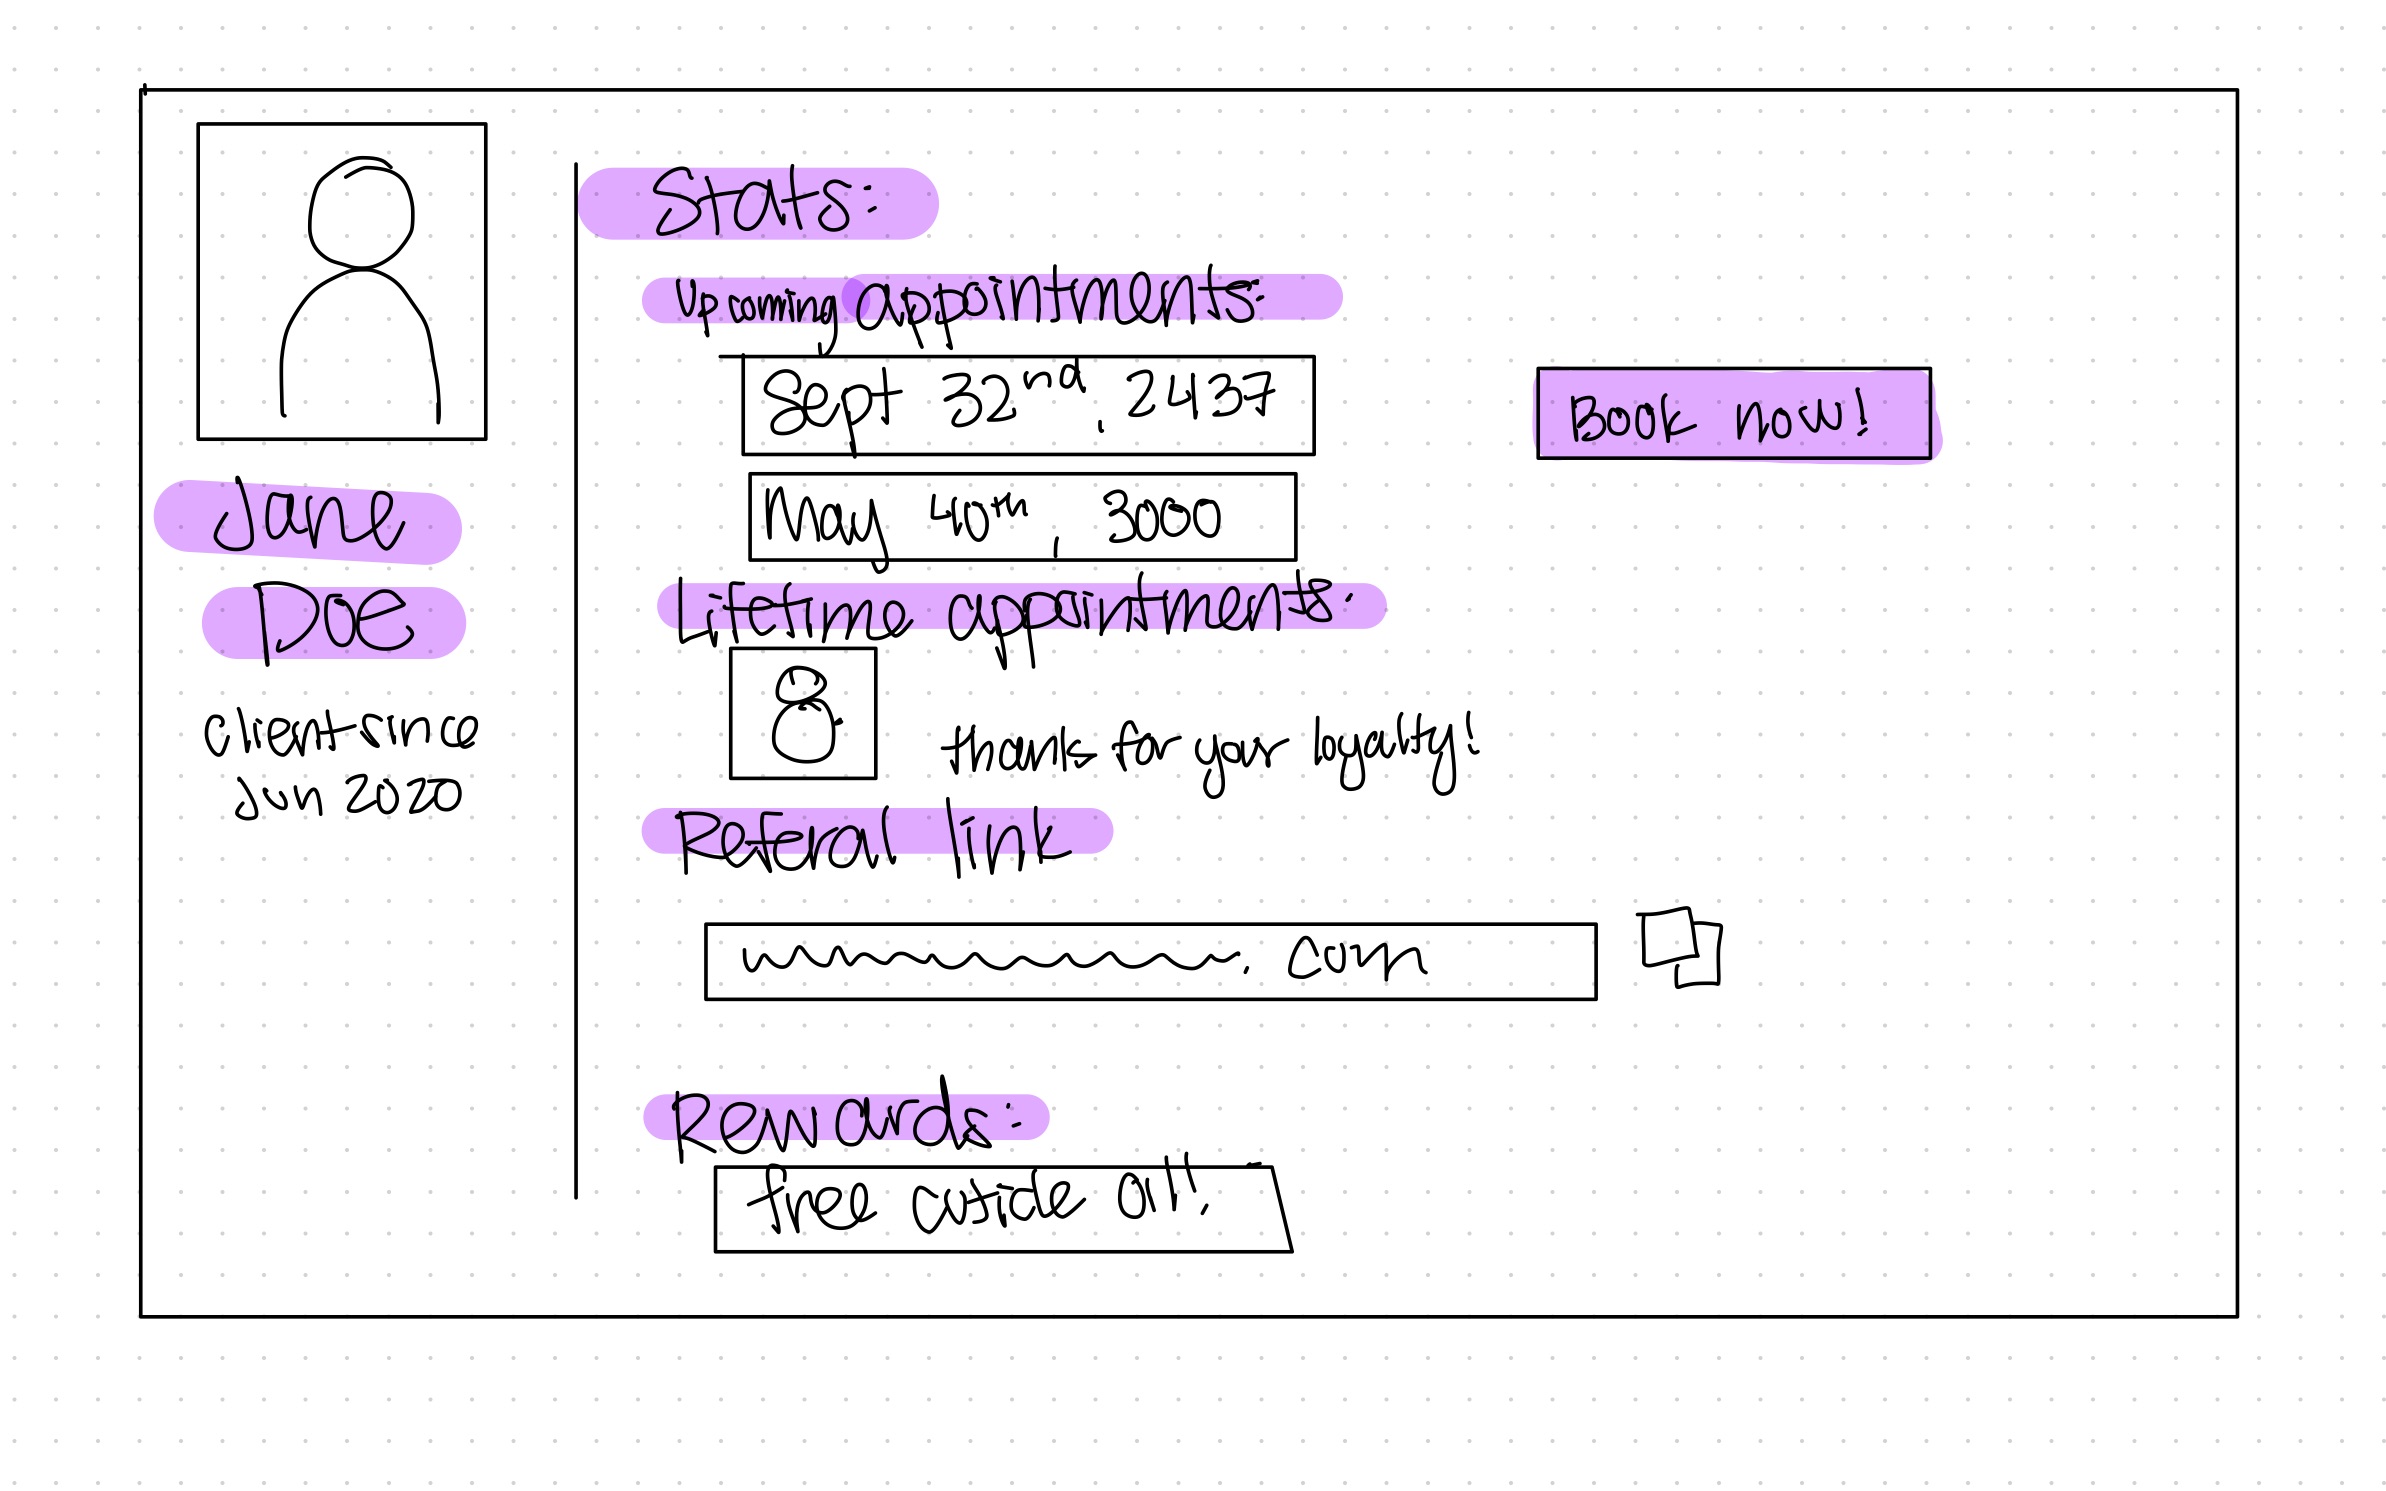 Jane
Doe
client since
Jun 2020
Stats:
Upcoming appointments:
Sept 32nd, 2437
Book now!
May 40th, 3000
Lifetime appointments:
8
thanks for your loyality!
Referal link
.com
Rewards:
free cuticle oil!